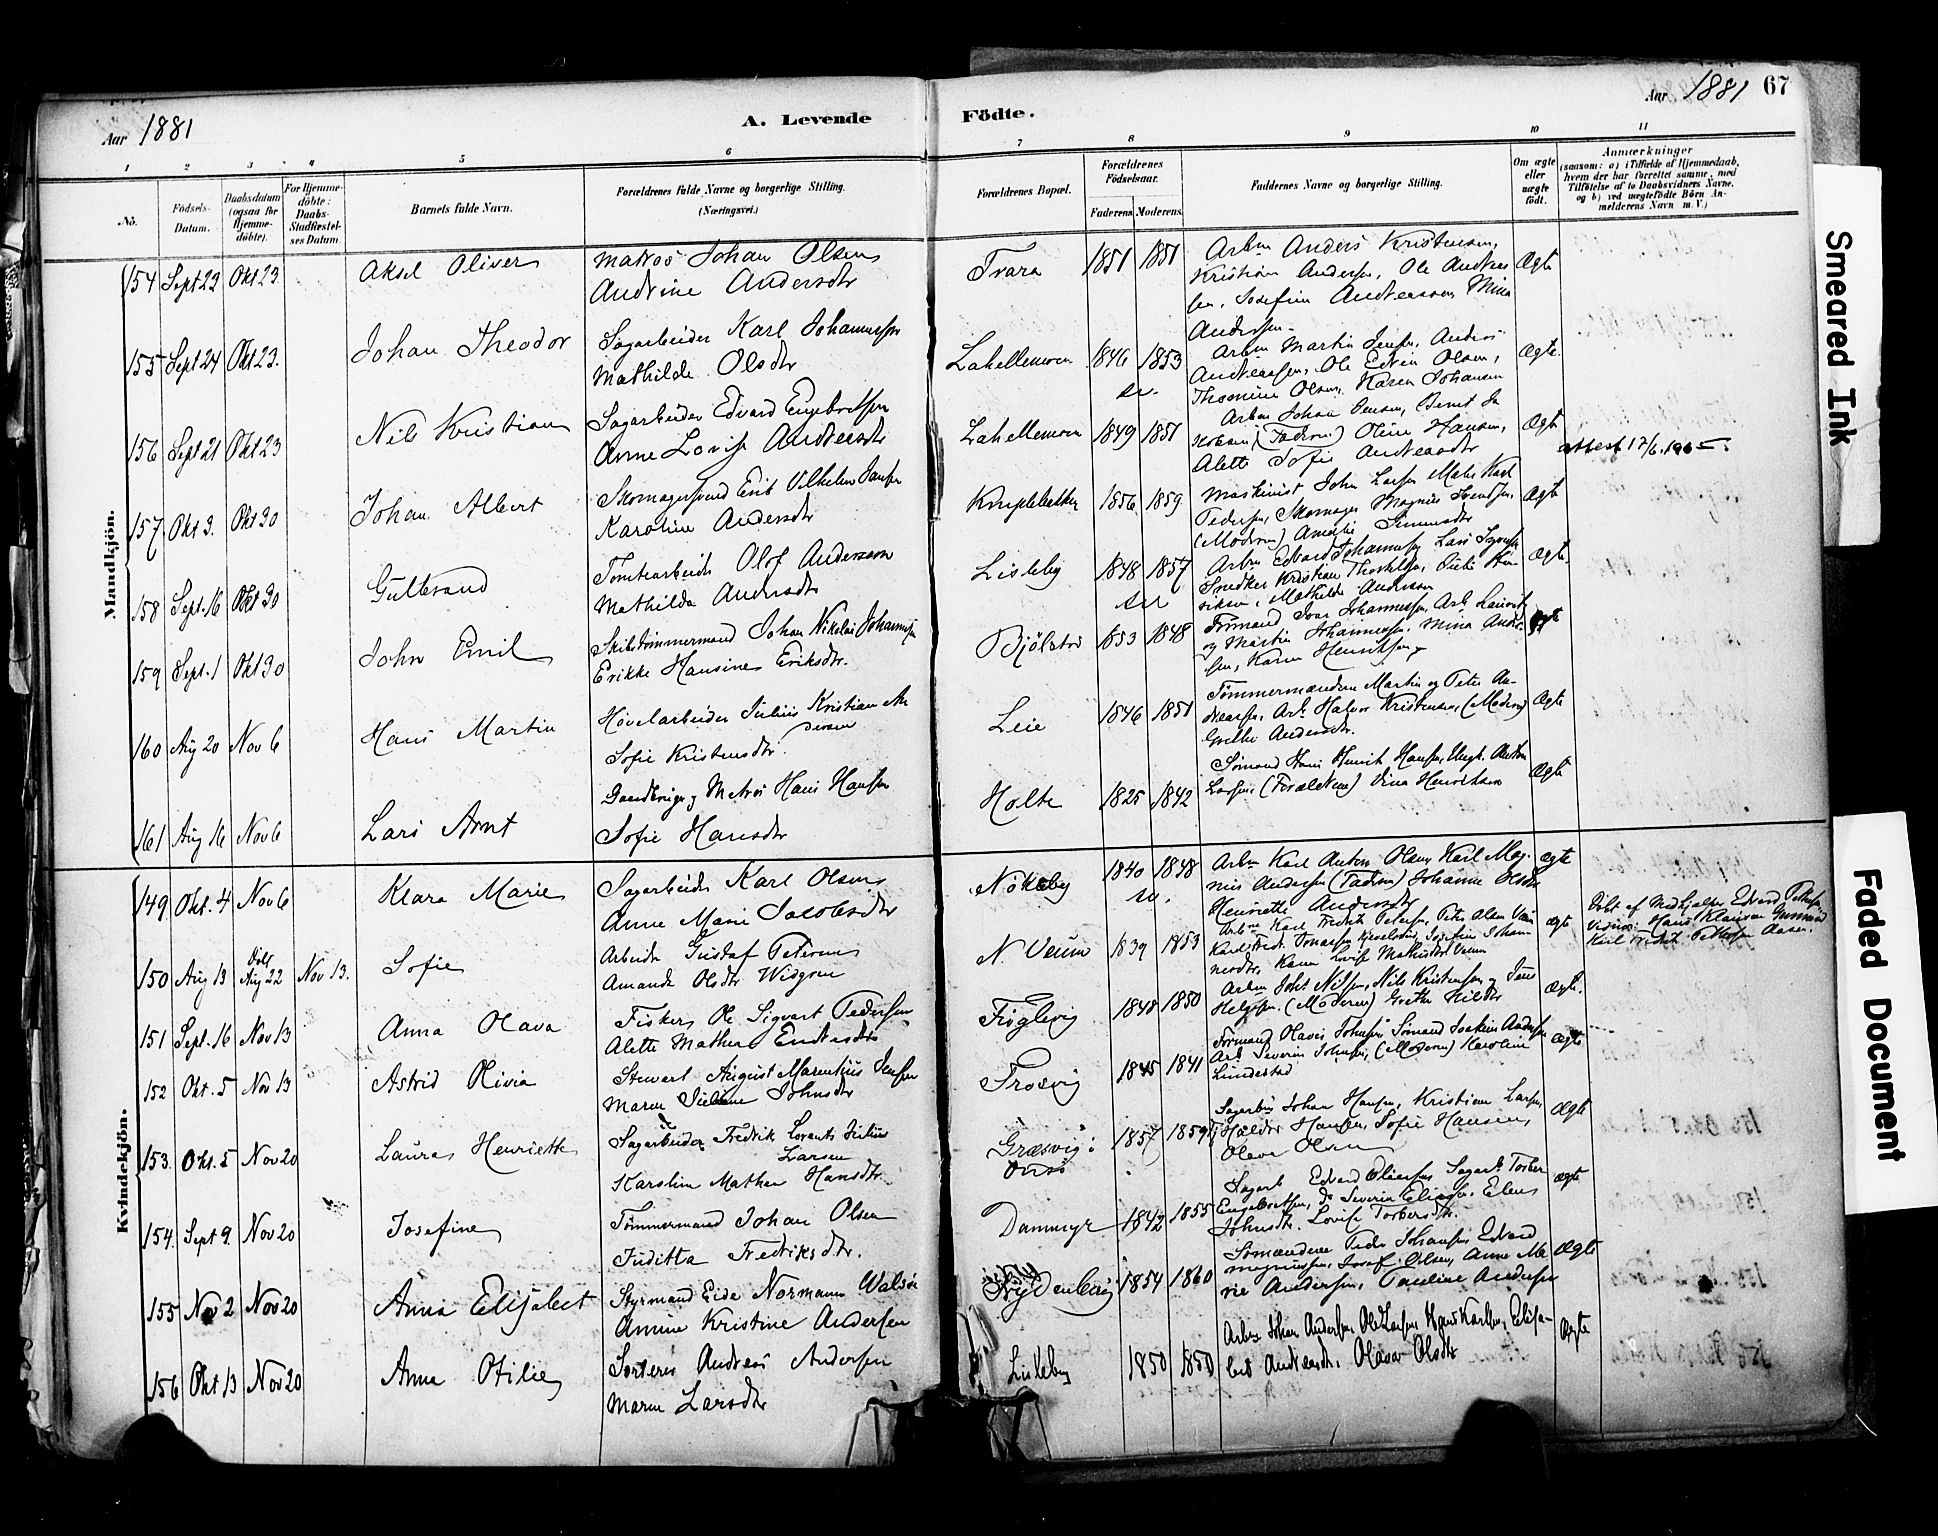 Aar 1881
A. Levende Födte.
Aar 1881 67
1 2 3 4 5 6 7 8 9 10 11
No.
Födsels-Datum.
Daabsdatum (ogsaa for Hjemme-döbte).
For Hjemme-döbte: Daabs-Stadfæstel-ses Datum
Barnets fulde Navn.
Forældrenes fulde Navne og borgerlige Stilling. (Næringsvei.)
Forældrenes Bopæl.
Forældrenes Födselsaar.
Faderens Moderens
Faddernes Navne og borgerlige Stilling.
Om ægte eller uægte födt.
Anmærkninger
(saasom: a) i Tilfælde af Hjemmedaab, hvem der har forrettet samme, med Tilföielse af to Daabsvidners Navne, og b) ved uægtefödte Börn An-melderens Navn m. V.)
Mandkjön.
154 Sept 23 Okt 23 Aksel Oliver
Matros Johan Olsen
Andrine Andersdtr
Trara 1851 1851
Arbm Anders Kristensen,
Kristian Andersen, Ole Andreas
sen, Josefine Andreassen Mina
Andersen
Ægte
155 Sept 24 Okt 23. Johan Theodor
Sagarbeider Karl Johannessen
Mathilde Olsdtr
Lahellemoen 1846 1853
Arbm Martin Jensen, Anders
Andreassen, Ole Edvin Olsen,
Thomine Olsen, Karen Johansen
Ægte.
156 Sept 21 Okt 23 Nils Kristian
Sagarbeider Edvard Engebretsen
Anne Lovise Andreasdtr
Lahellemoen 1849 1851
Arbm Johan Jensen, Bernt Ja
kobsen (Faderen) Oline Hansen,
Alette Sofie Andreasdtr
Ægte
attest 17/6.1905.
157 Okt 3. Okt 30 Johan Albert
Skomagersvend Emil Vilhelm Jansen
Karoline Andersdtr
Kniplebakken 1856 1859
Maskinist John Larsen Maler Karl
Pedersen, Skomager Magnus Svendsen,
(Moderen) Amalie Gunnersdtr
Ægte
158 Sept. 16 Okt 30 Gulbrand
Tomtearbeider Olof Andersson
Mathilda Andersdtr
Lisleby 1848 1857
Arbm Edvard Johannessen Lars
Snedker Kristian
Mathilde Andersen
Ægte.
159 Sept. 1 Okt 30 John Emil
Skibstömmermand Johan Nikolai Johannessen
Erikke Hansine Eriksdtr.
Bjölstad 1853 1848
Formand Ivar Johannessen, Arb. Lauritz
og Martin Johannessen. Mina Andre-
sen, Karen Henriksen
Ægte
160 Aug 20 Nov 6 Hans Martin
Hövelarbeider Julius Kristian An
dersen
Sofie Kristensdtr.
Leie 1846 1851
Tömmermændene Martin og Peter An-
dreassen, Arb. Halvor Kristensen, (Moderen)
Grethe Andersdtr.
Ægte
161 Aug 16 Nov 6 Lars Arnt
Gaardbruger og Matros Hans Hansen
Sofie Hansdtr
Holte 1825 1842
Sömand Hans Henrik Hansen, Ungk. Anton
Larsen (Forældrene) Dina Henriksen
Ægte
Kvindekjön.
149 Okt. 4 Nov 6 Klara Marie
Sagarbeider Karl Olsen
Anne Marie Jacobsdtr
Nökleby 1840 1848
Arbm Karl Anton Olsen, Karl Mag-
nus Andersen (Faderen) Johanne Olsen
Henriette Andersdtr
ægte
150 Aug 13 Döbt Aug 22 Nov 13. Sofie
Arbeider Gustaf Peterson
Amanda Olsdtr Widgren
N Veum 1839 1853
Arbm Karl Fredrik Petersen, Peter Olsen Veum
Karl Fredr. Jonassen Josefine Johan-
nesdtr, Karen Lovise Mathisdtr Veum
ægte
Döbt af Medhjælper Edvard Pettersen
Vidner: Hans Klausen
Karl Fredrik Pettersen Aasen.
151 Sept. 16 Nov 13 Anna Olava
Fisker Ole Sigvart Pedersen
Alette Mathea
Fuglevig 1848 1850
Arbm Johs Nilsen, Nils Kristensen og Jens
Helgesen. (Moderen) Grethe Nilsdtr
Ægte.
152 Okt. 5 Nov 13 Astrid Olivia
Stewart August Marentius Jensen
Maren Juliane Johnsdtr
Trosvig 1845 1841
Formand Olaves Johnsen, Sömand Joakim Andersen
Arb. Severin Johnsen, (Moderen) Karoline
Lindestad
Ægte
153. Okt. 5 Nov 20 Laura Henriette
Sagarbeider Fredrik Lorents Julius
Larsen
Karoline Mathea Hansdtr.
Græsvig i
Onsö
1857 1859
Sagarbm Johan Hansen, Kristian Larsen,
Haldor Hansen, Sofie Hansen,
Olava Olsen
Ægte
154. Sept 9. Nov 20 Josefine
Tömmermand Johan Olsen
Juditta Fredriksdtr.
Dammyr 1842 1855
Sagarb Edvard Oliversen Sagarb. Torber
Engebretsen, Do Severin Eliasen. Elen
Johnsdtr. Lovise Torbersdtr.
ægte
155 Nov 2 Nov 20 Anna Elisabet
Styrmand Eide Normann Walsöe
Amine Kristine Andersen
Frydenberg 1854 1860
Sömændene Peder Johansen Edvard
Magnussen, Josef Olsen, Anne Ma
rie Andersen, Pauline Andersen
Ægte
156 Okt 13 Nov 20 Anna Otilie
Sorterer Andreas Andersen
Maren Larsdtr
Lisleby 1850 1850
Arbm Johan Andersen, Ole Larsen Hans Karlsen, Elisa-
bet Andreasdtr. Olava Olsdtr
Ægte
Smeared Ink
Faded Document